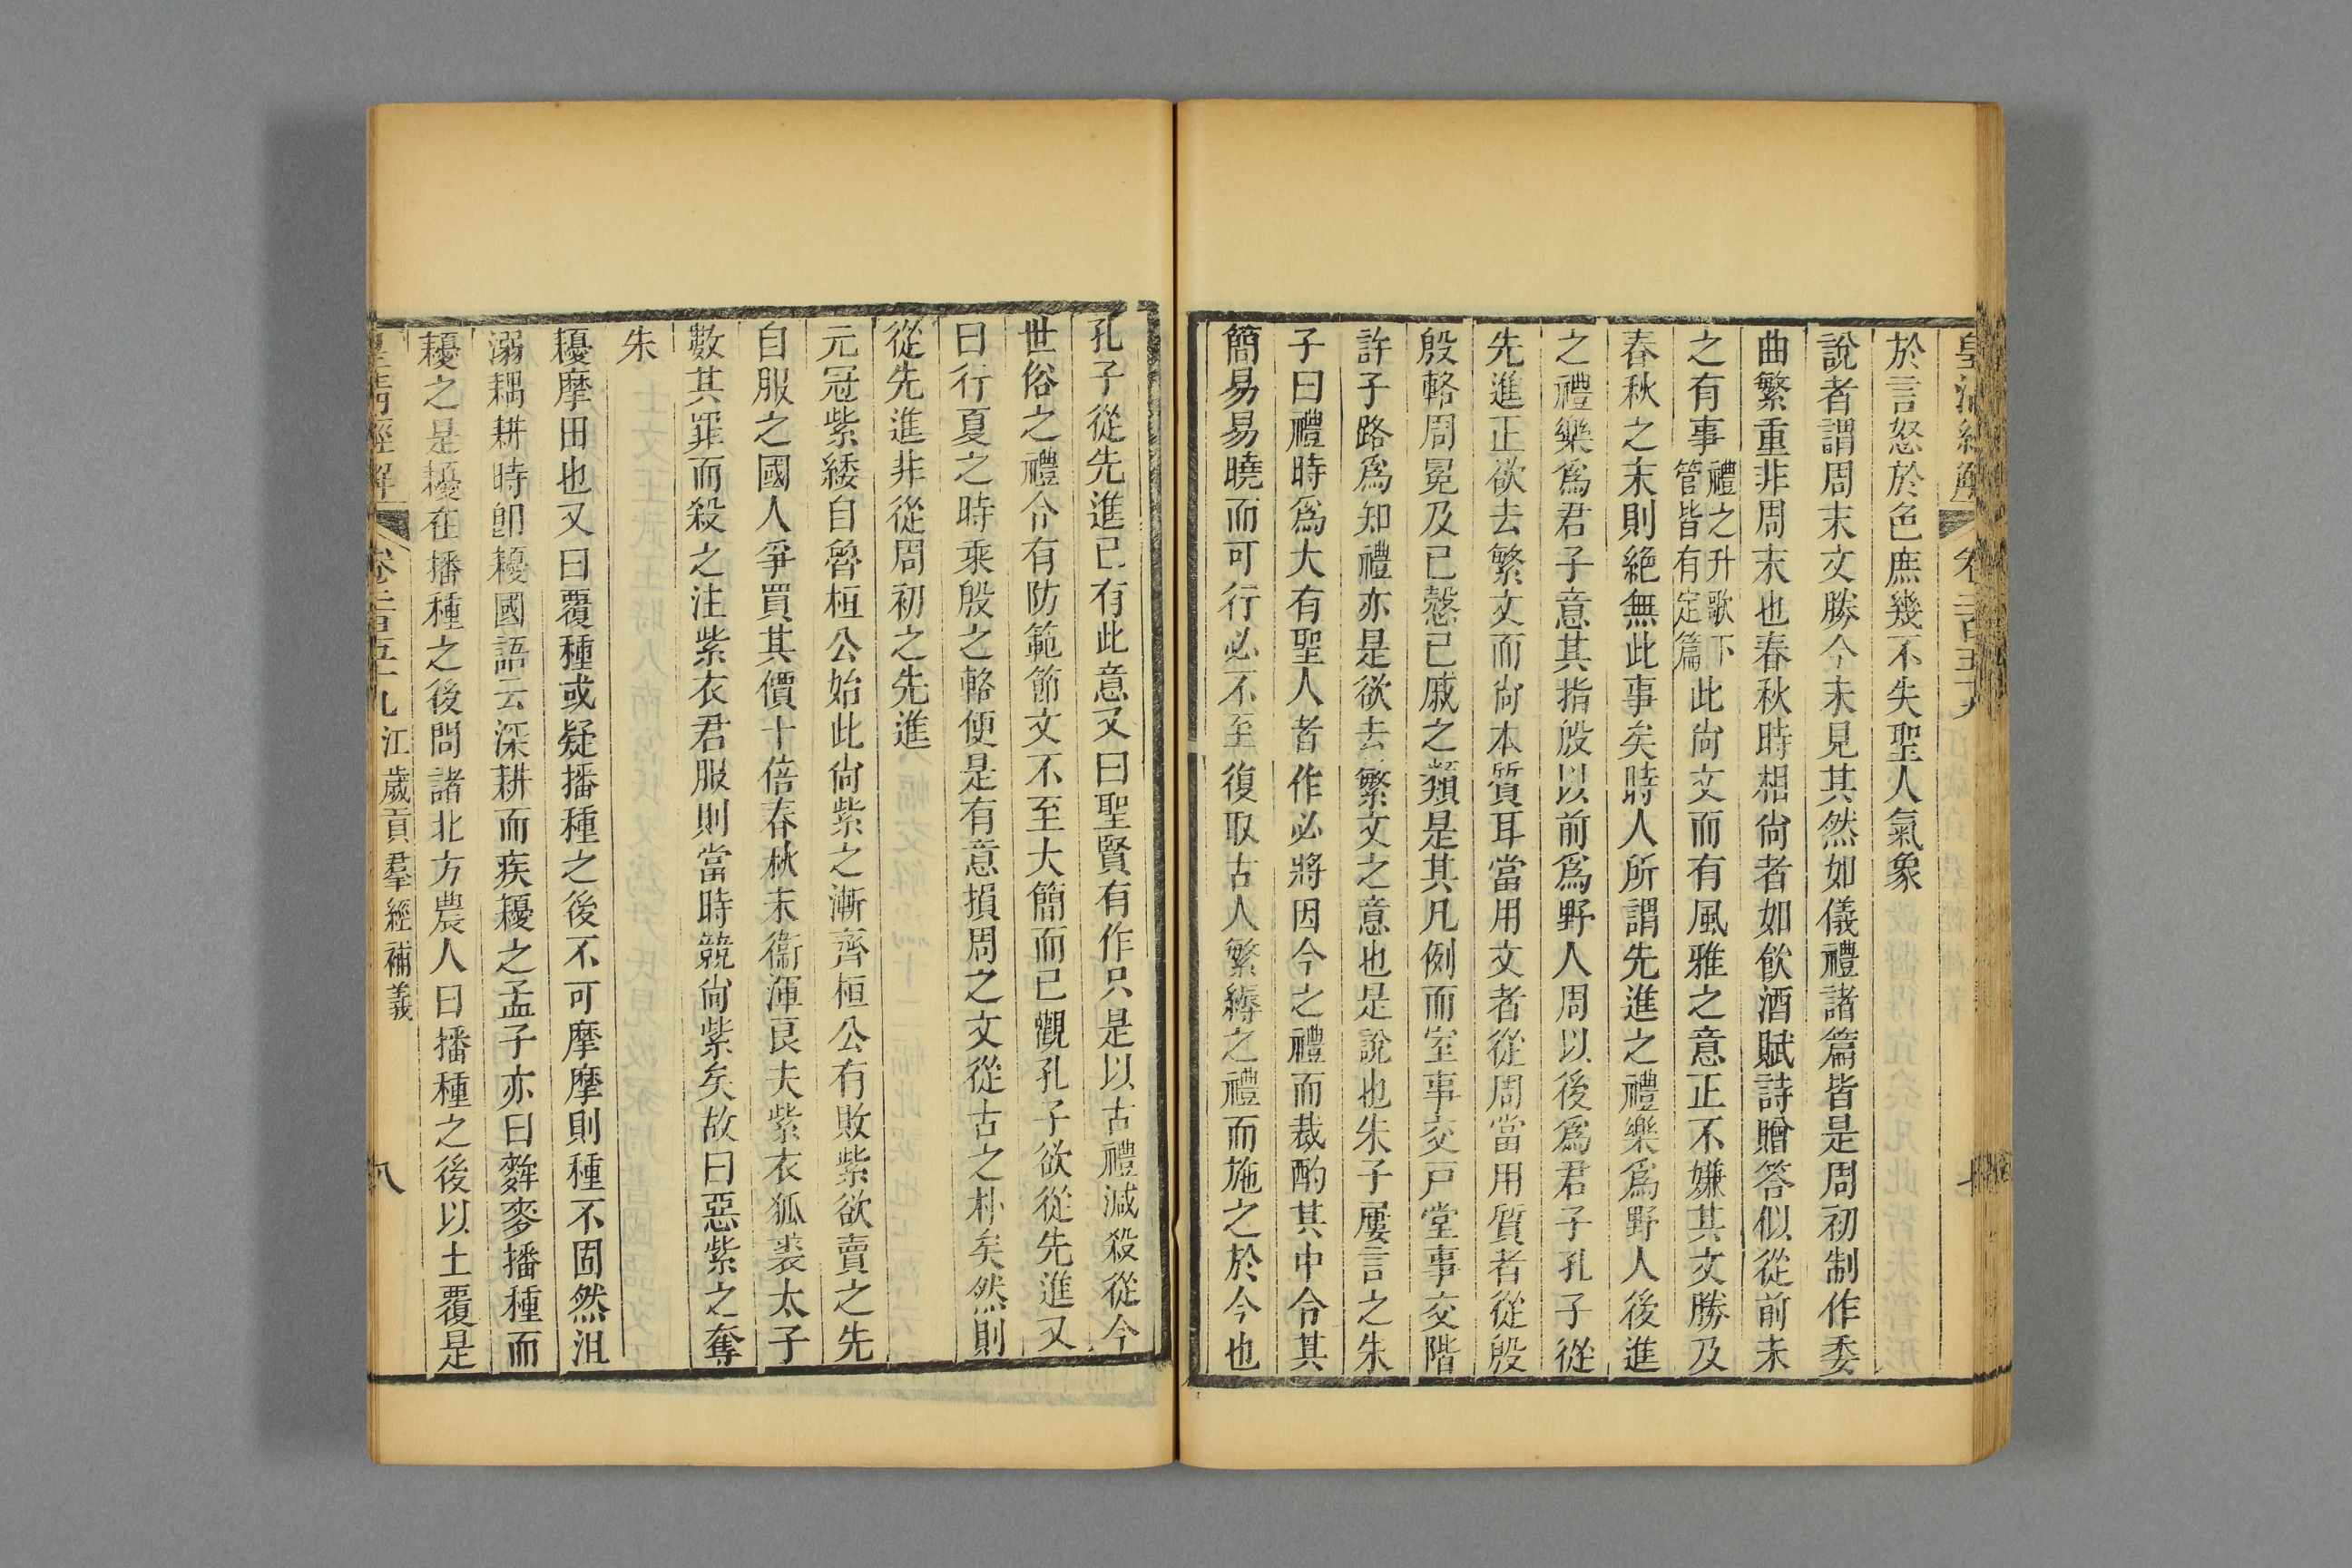 皇清經解 卷二百五十九 七
於言怒於色庶幾不失聖人氣象
說者謂周末文勝今未見其然如儀禮諸篇皆是周初制作委
曲繁重非周末也春秋時相尙者如飮酒賦詩贈答似從前未
之有事禮之升歌下管皆有定篇此尙文而有風雅之意正不嫌其文勝及
春秋之末則絶無此事矣時人所謂先進之禮樂爲野人後進
之禮樂爲君子意其指殷以前爲野人周以後爲君子孔子從
先進正欲去繁文而尙本質耳當用文者從周當用質者從殷
殷輅周冕及已慤已戚之類是其凡例而室事交戸堂事交階
許子路爲知禮亦是欲去繁文之意也是說也朱子屢言之朱
子曰禮時爲大有聖人者作必將因今之禮而裁酌其中令其
簡易易曉而可行必不至復取古人繁縟之禮而施之於今也
孔子從先進已有此意又曰聖賢有作只是以古禮減殺從今
世俗之禮令有防範節文不至大簡而已觀孔子欲從先進又
曰行夏之時乘殷之輅便是有意損周之文從古之朴矣然則
從先進非從周初之先進
元冠紫緌自魯桓公始此尙紫之漸齊桓公有敗紫欲賣之先
自服之國人爭買其價十倍春秋末衞渾良夫紫衣狐裘太子
數其罪而殺之注紫衣君服則當時競尙紫矣故曰惡紫之奪
朱
耰摩田也又曰覆種或疑播種之後不可摩摩則種不固然沮
溺耦耕時卽耰國語云深耕而疾耰之孟子亦曰麰麥播種而
耰之是耰在播種之後問諸北方農人曰播種之後以土覆是
皇清經解 卷二百五十九 江歲貢羣經補義 八